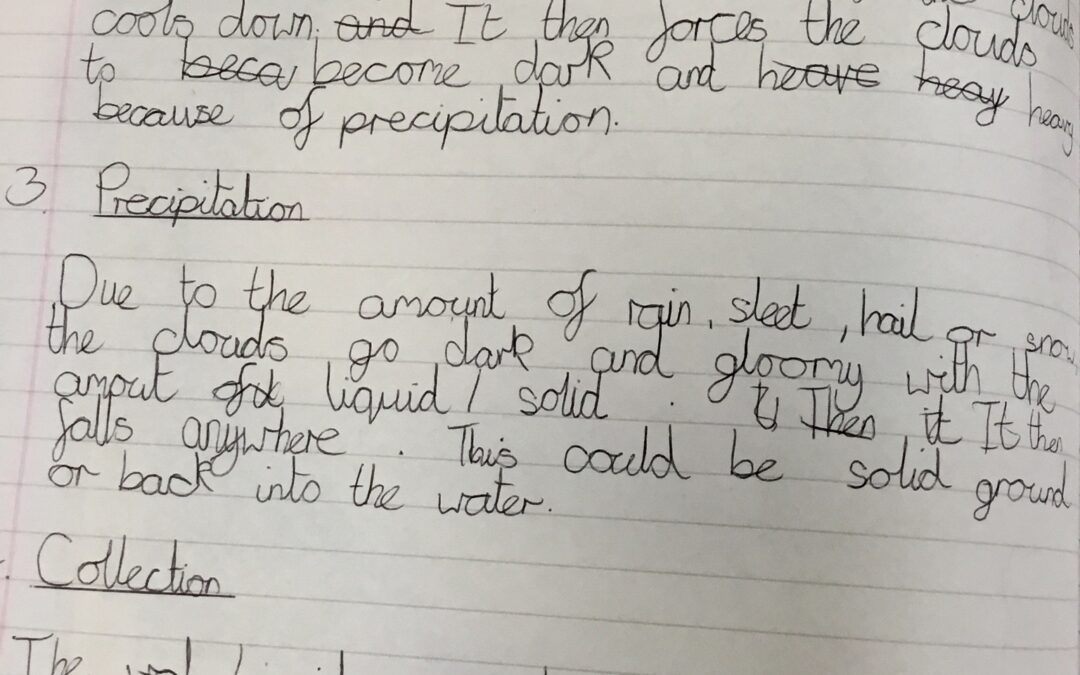 clouds
cools down. and It then forces the clouds
to beca, become dark and heave heay heavy
because of precipitation.
3. Precipitation
Due to the amount of rain, sleet, hail or snow,
the clouds go dark and gloomy with the
amout of liquid / solid. Then it It then
falls anywhere. This could be solid ground
or back into the water.
Collection
The